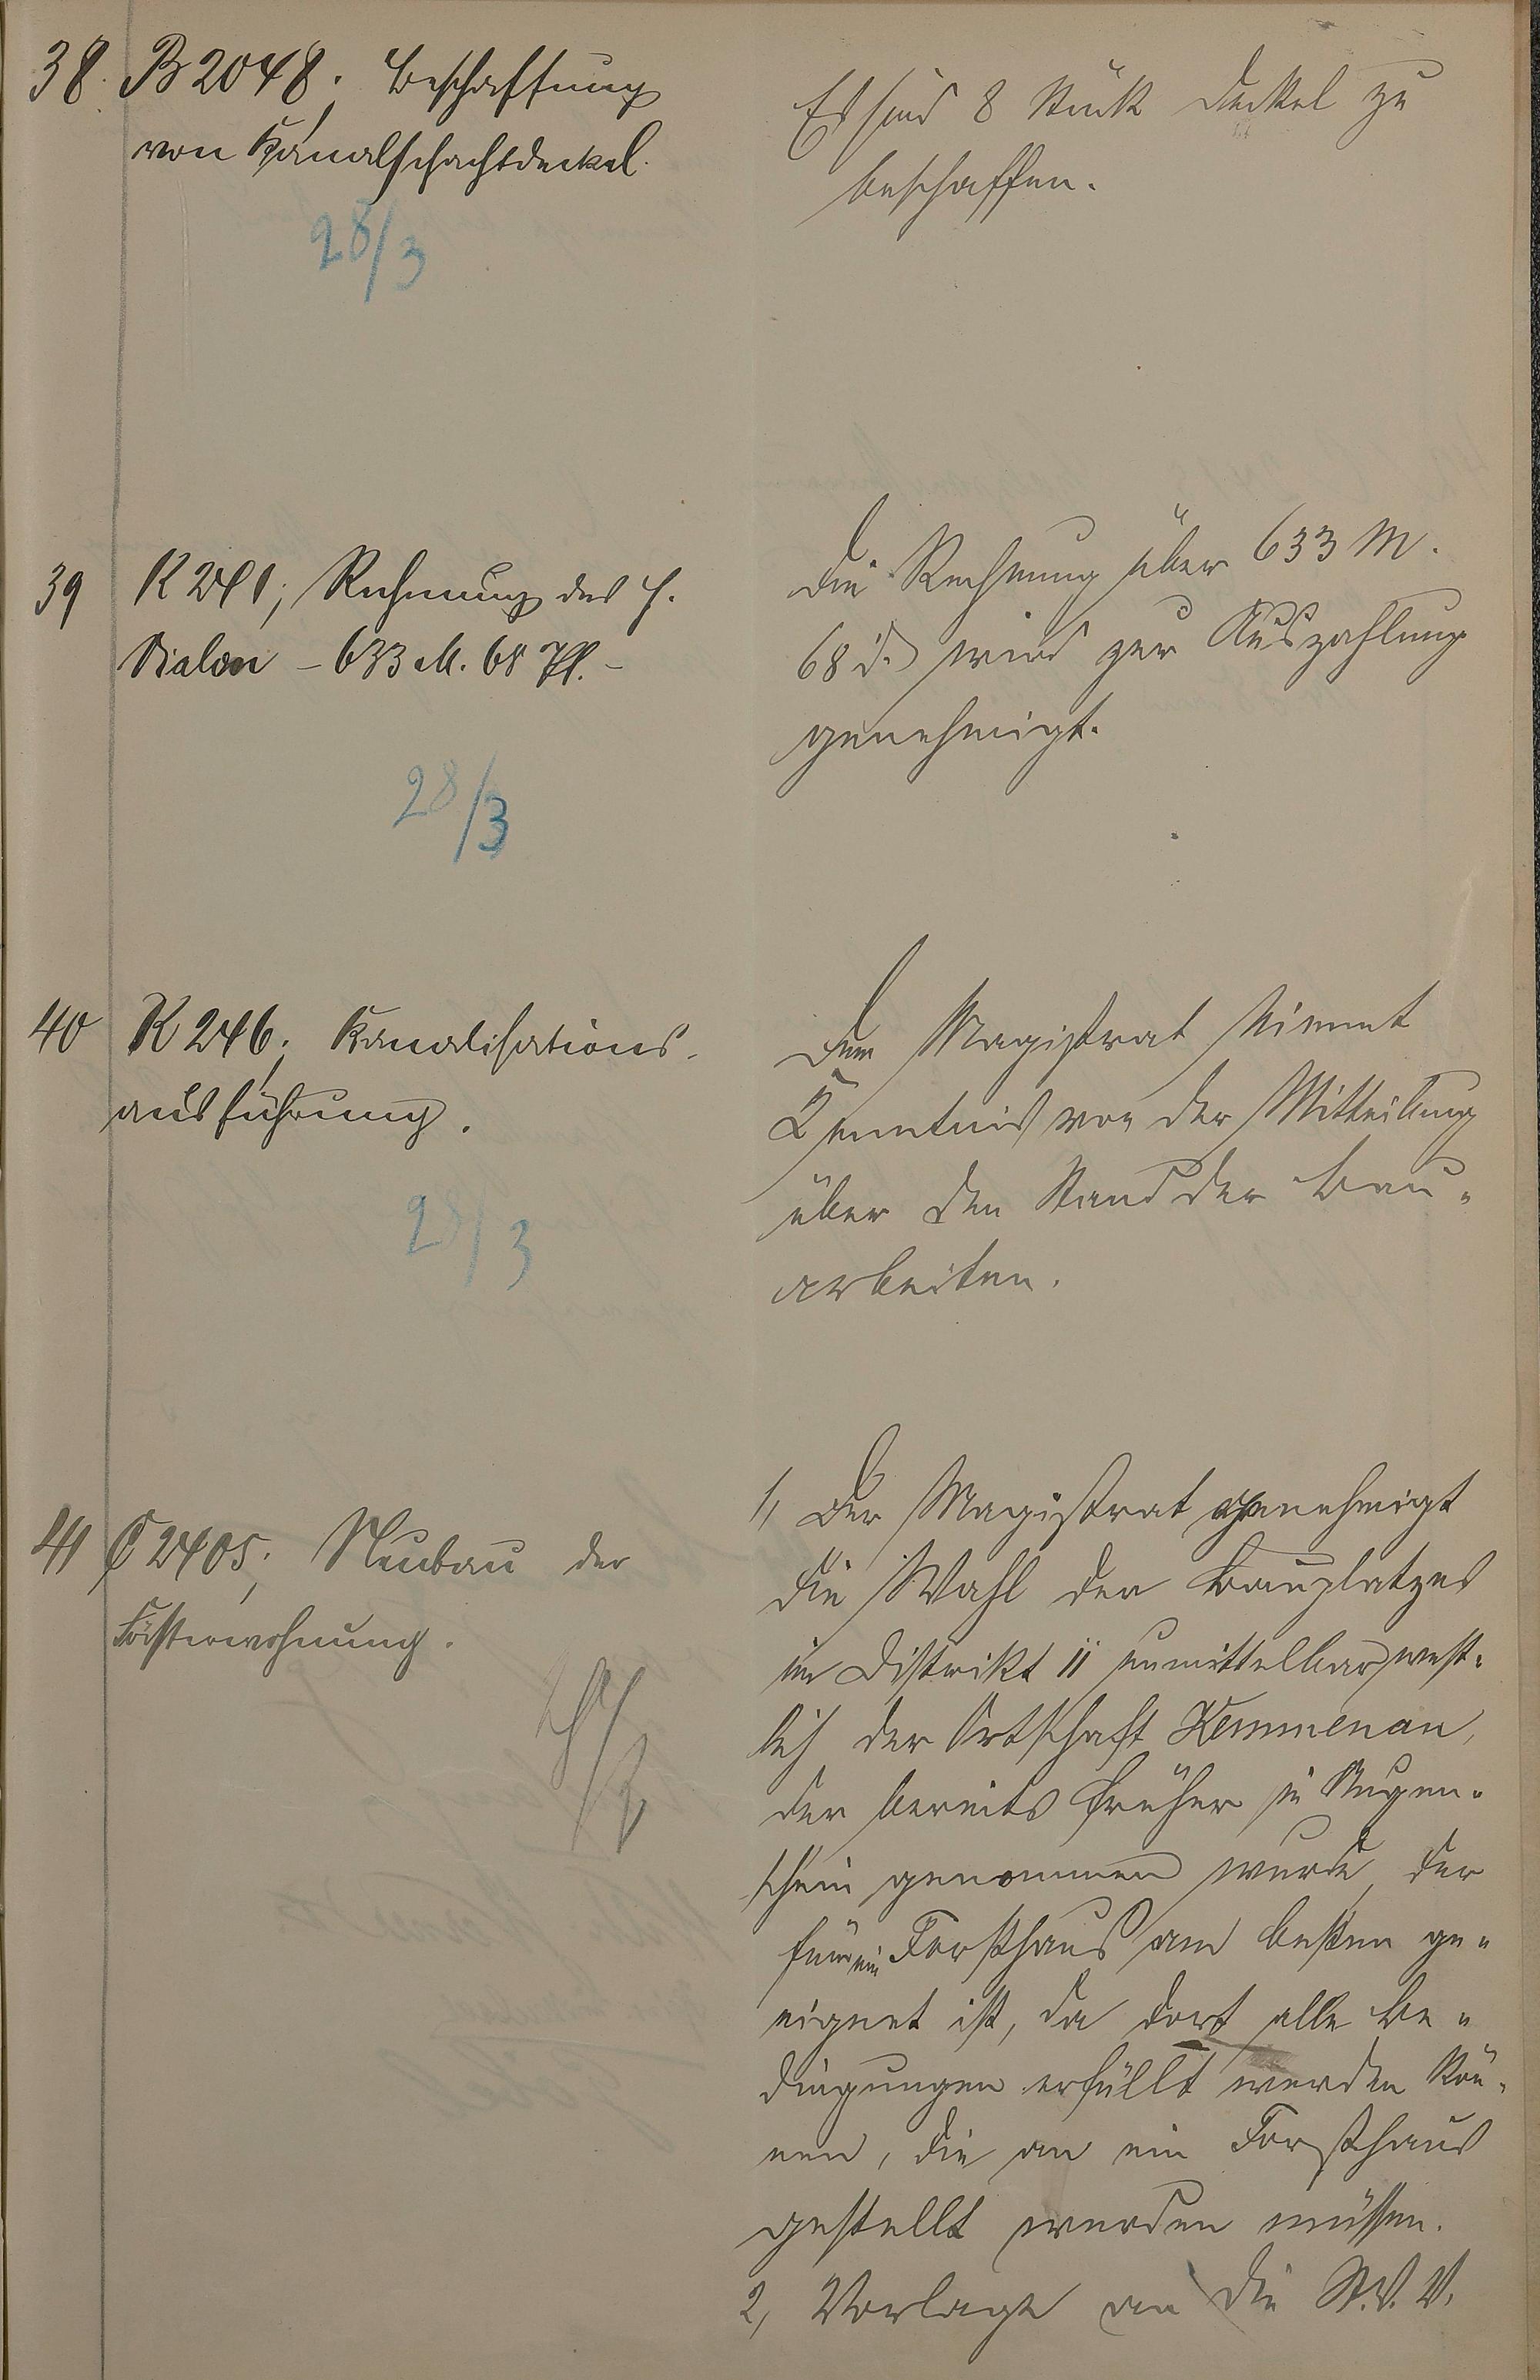 38. B 2048; Beschaffung
von Kanalschachtdeckel.
28/3
Es sind 8 Stück Deckel zu
beschaffen.
39 K 241; Rechnung des H.
- 633 M. 68 Pf. -
28/3
Die Rechnung über 633 M.
68 d. wird zur Auszahlung
genehmigt.
40 K 246; Kanalisations-
ausführung.
28/3
Der Magistrat nimmt
Kenntnis von der Mitteilung
über den Stand der Bau-
arbeiten.
41 C 2405; Neubau der
Försterwohnung.
1, Der Magistrat genehmigt
die Wahl des Bauplatzes
im Distrikt 11 unmittelbar west-
lich der Ortschaft Kemmenau,
der bereits früher in Augen-
schein genommen wurde, der
für ein Forsthaus am besten ge-
eignet ist, da dort alle Be-
dingungen erfüllt werden kön-
nen, die an ein Forsthaus
gestellt werden müssen.
2, Vorlage an die St. V. V.